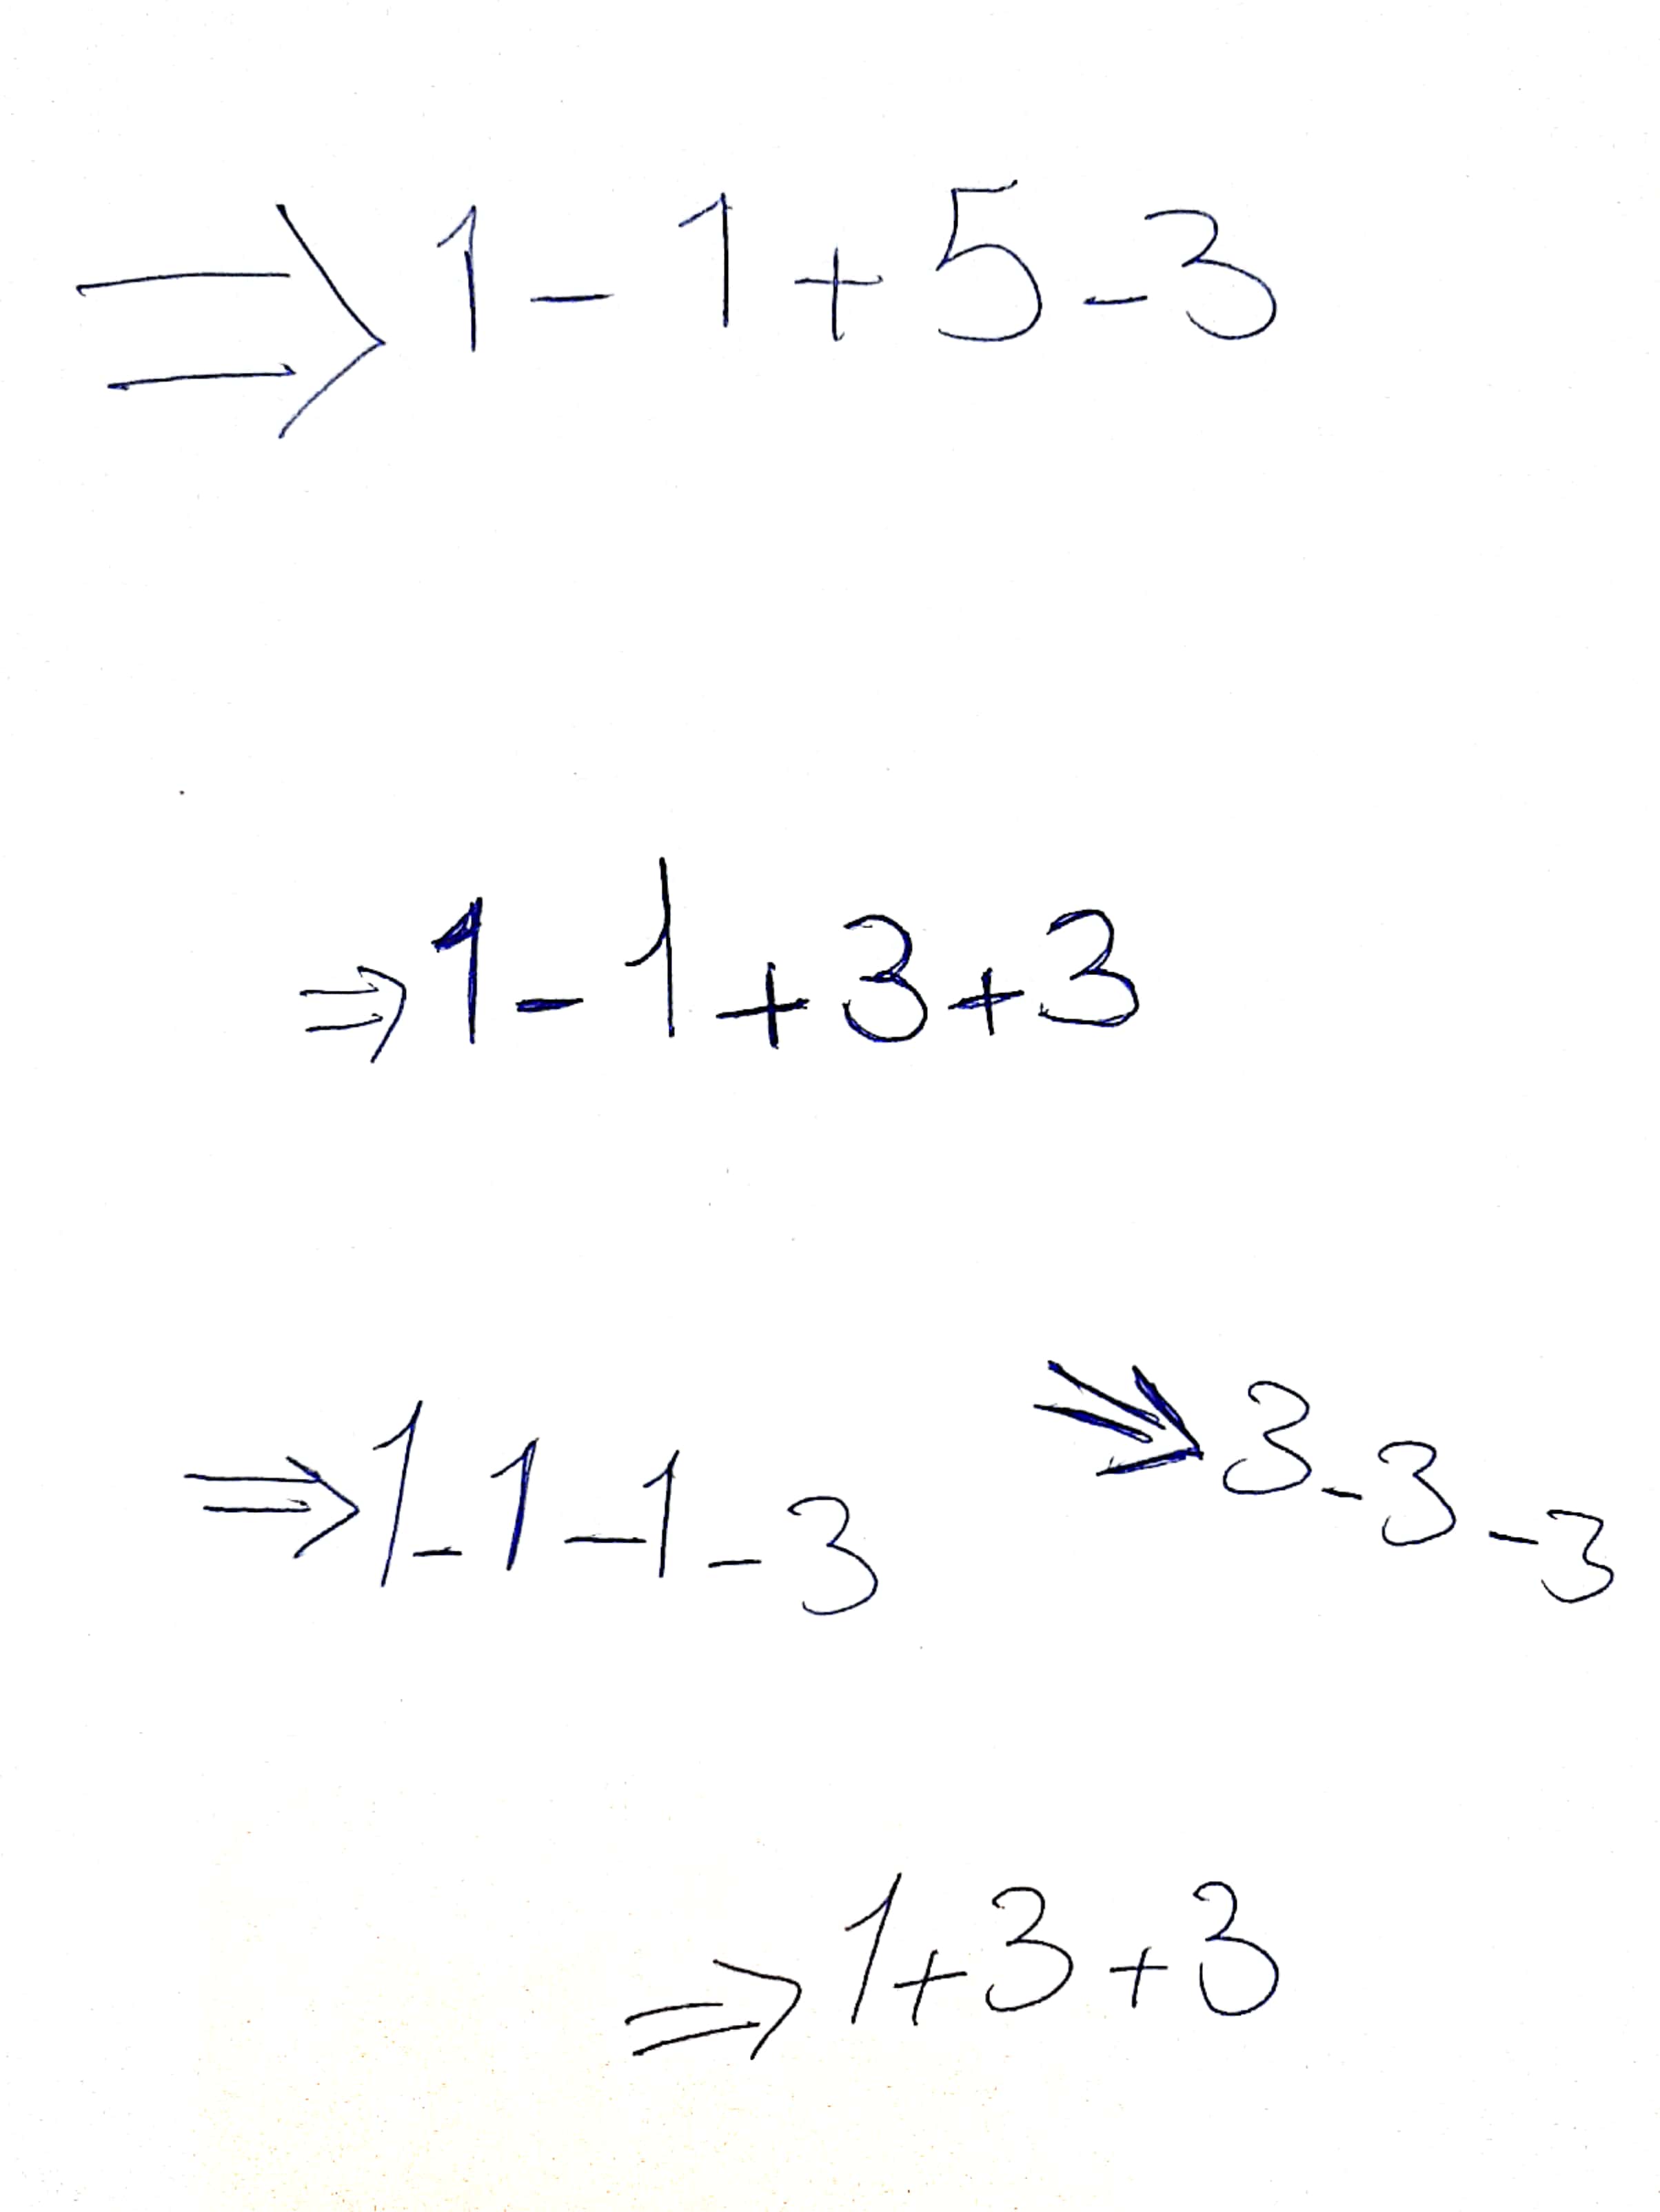 ⇒ 1 - 1 + 5 - 3
⇒ 1 - 1 + 3 + 3
⇒ 1 - 1 - 1 - 3
⇒ 3 - 3 - 3
⇒ 1 + 3 + 3